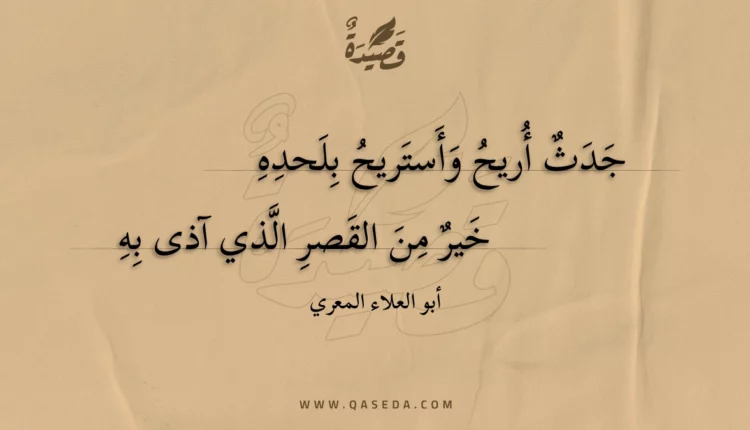 قَصِيدَةٌ
جَدَثٌ أُريحُ وَأَستَريحُ بِلَحدِهِ
خَيرٌ مِنَ القَصرِ الَّذي آذى بِهِ
أبو العلاء المعري
WWW.QASEDA.COM